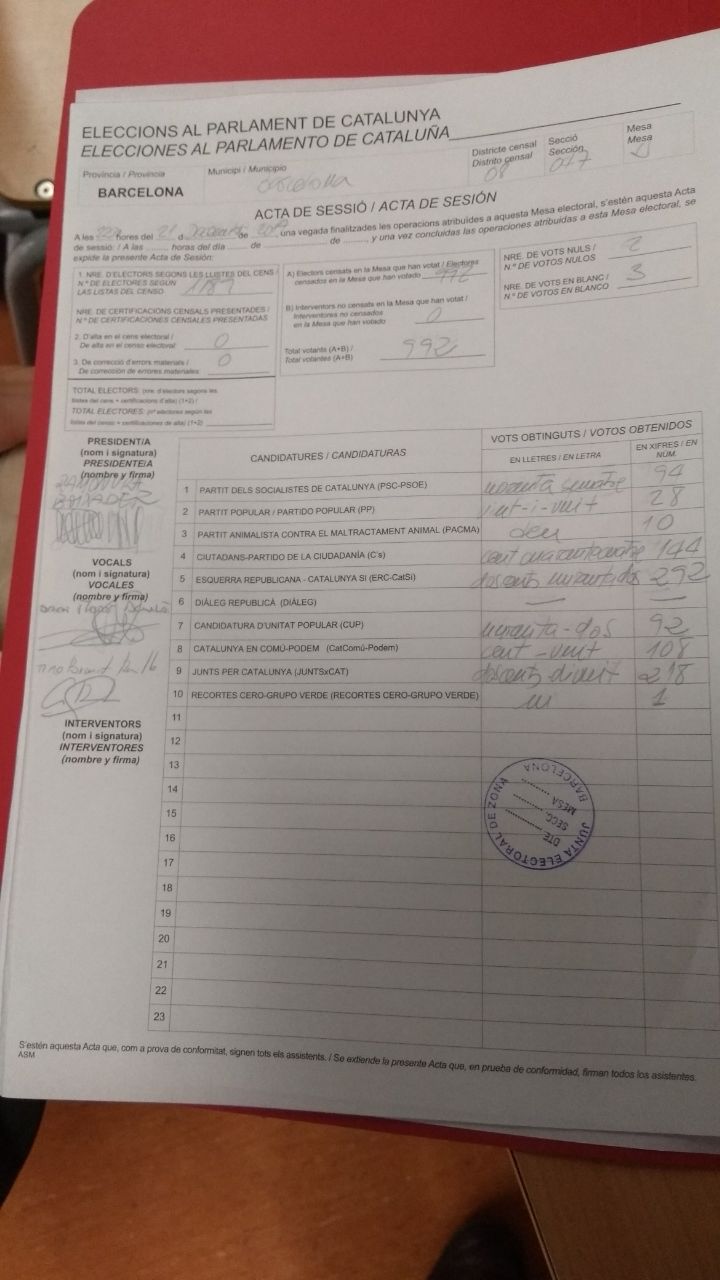 ELECCIONS AL PARLAMENT DE CATALUNYA
ELECCIONES AL PARLAMENTO DE CATALUÑA
Província / Provincia
BARCELONA
Municipi / Municipio
Barcelona
Districte censal
Distrito censal
08
Secció
Sección
017
Mesa
Mesa
ACTA DE SESSIÓ / ACTA DE SESIÓN
A les 22 hores del 21 d desembre de 2017 una vegada finalitzades les operacions atribuïdes a aquesta Mesa electoral, s'estén aquesta Acta
de sessió: / A las ......... horas del día ......... de ......... de ........., y una vez concluidas las operaciones atribuidas a esta Mesa electoral, se
expide la presente Acta de Sesión:
1. NRE. D'ELECTORS SEGONS LES LLISTES DEL CENS /
N.º DE ELECTORES SEGÚN
LAS LISTAS DEL CENSO
NRE. DE CERTIFICACIONS CENSALS PRESENTADES /
N.º DE CERTIFICACIONES CENSALES PRESENTADAS
2. D'alta en el cens electoral /
De alta en el censo electoral: 0
3. De correcció d'errors materials /
De corrección de errores materiales 0
TOTAL ELECTORS: (nre. d'electors segons les
llistes del cens + certificacions d'alta) (1+2) /
TOTAL ELECTORES: (nº electores según las
listas del censo + certificaciones de alta) (1+2)
A) Electors censats en la Mesa que han votat / Electores
censados en la Mesa que han votado 992
B) Interventors no censats en la Mesa que han votat /
Interventores no censados
en la Mesa que han votado 0
Total votants (A+B) /
Total votantes (A+B) 992
NRE. DE VOTS NULS /
N.º DE VOTOS NULOS 2
NRE. DE VOTS EN BLANC /
N.º DE VOTOS EN BLANCO 3
PRESIDENT/A
(nom i signatura)
PRESIDENTE/A
(nombre y firma)
VOCALS
(nom i signatura)
VOCALES
(nombre y firma)
INTERVENTORS
(nom i signatura)
INTERVENTORES
(nombre y firma)
CANDIDATURES / CANDIDATURAS
VOTS OBTINGUTS / VOTOS OBTENIDOS
EN LLETRES / EN LETRA
EN XIFRES / EN NÚM.
1 PARTIT DELS SOCIALISTES DE CATALUNYA (PSC-PSOE) noranta quatre 94
2 PARTIT POPULAR / PARTIDO POPULAR (PP) vint-i-vuit 28
3 PARTIT ANIMALISTA CONTRA EL MALTRACTAMENT ANIMAL (PACMA) deu 10
4 CIUTADANS-PARTIDO DE LA CIUDADANÍA (C's) cent quaranta quatre 144
5 ESQUERRA REPUBLICANA - CATALUNYA SÍ (ERC-CatSí) doscents noranta dos 292
6 DIÀLEG REPUBLICÀ (DIÀLEG) — —
7 CANDIDATURA D'UNITAT POPULAR (CUP) noranta-dos 92
8 CATALUNYA EN COMÚ-PODEM (CatComú-Podem) cent-vuit 108
9 JUNTS PER CATALUNYA (JUNTSxCAT) doscents divuit 218
10 RECORTES CERO-GRUPO VERDE (RECORTES CERO-GRUPO VERDE) un 1
11
12
13
14
15
16
17
18
19
20
21
22
23
JUNTA ELECTORAL DE ZONA
BARCELONA
DTE
SECC.
MESA
S'estén aquesta Acta que, com a prova de conformitat, signen tots els assistents. / Se extiende la presente Acta que, en prueba de conformidad, firman todos los asistentes.
ASM